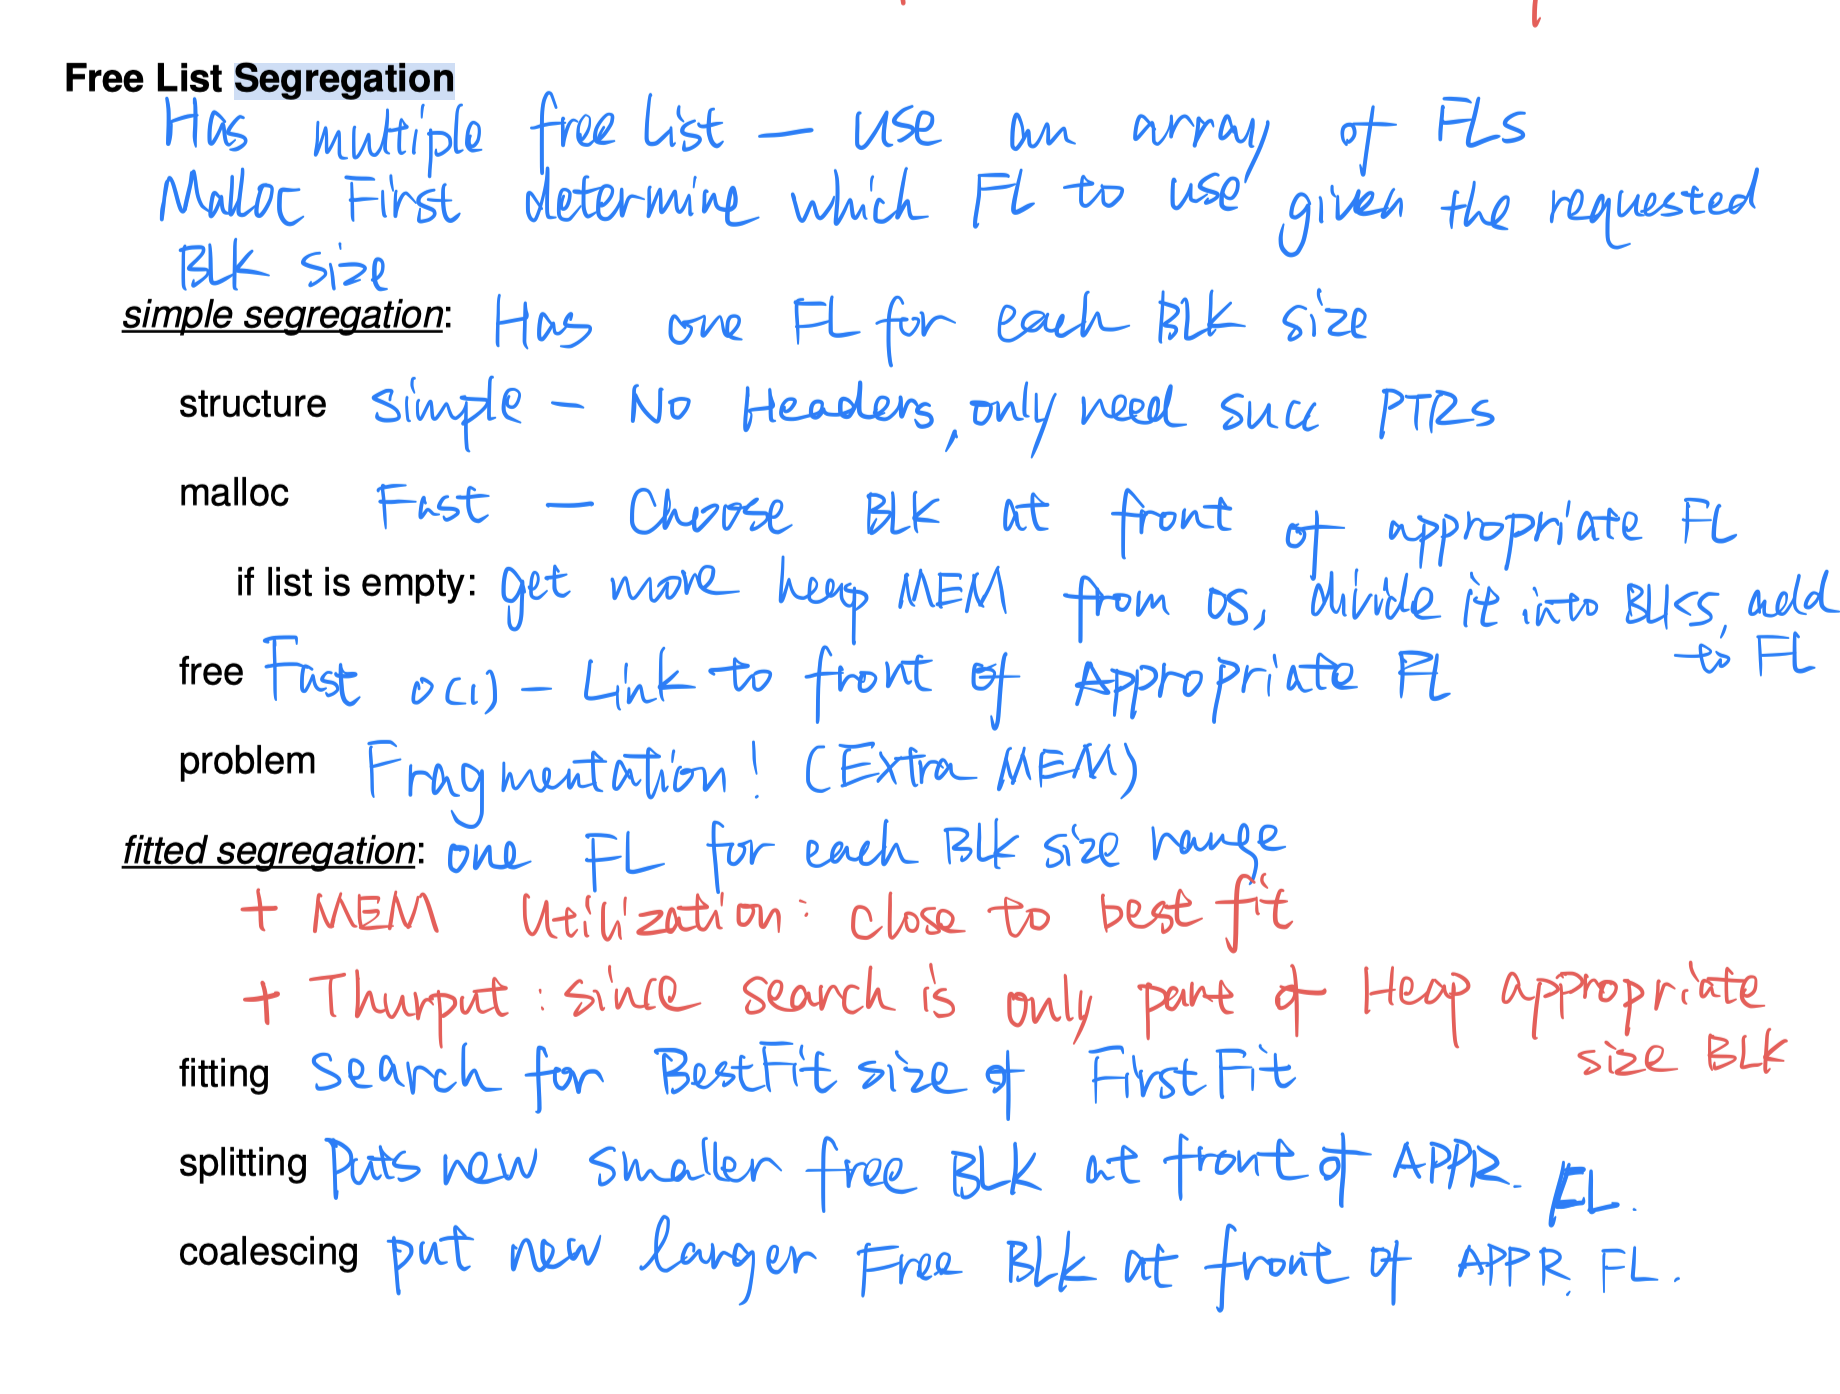 Free List Segregation
Has multiple free list — use an array of FLs
Malloc First determine which FL to use given the requested
BLK size
simple segregation: Has one FL for each BLK size
structure simple - No Headers, only need succ PTRs
malloc Fast — Choose BLK at front of appropriate FL
if list is empty: get more heap MEM from OS, divide it into BLKS, add
to FL
free Fast O(1) - Link to front of Appropriate FL
problem Fragmentation! (Extra MEM)
fitted segregation: one FL for each Blk size range
+ MEM Utilization: close to best fit
+ Thurput: since search is only part of Heap appropriate
size BLK
fitting search for BestFit size of FirstFit
splitting Puts new smaller free BLK at front of APPR. FL.
coalescing put new larger Free BLk at front of APPR. FL.